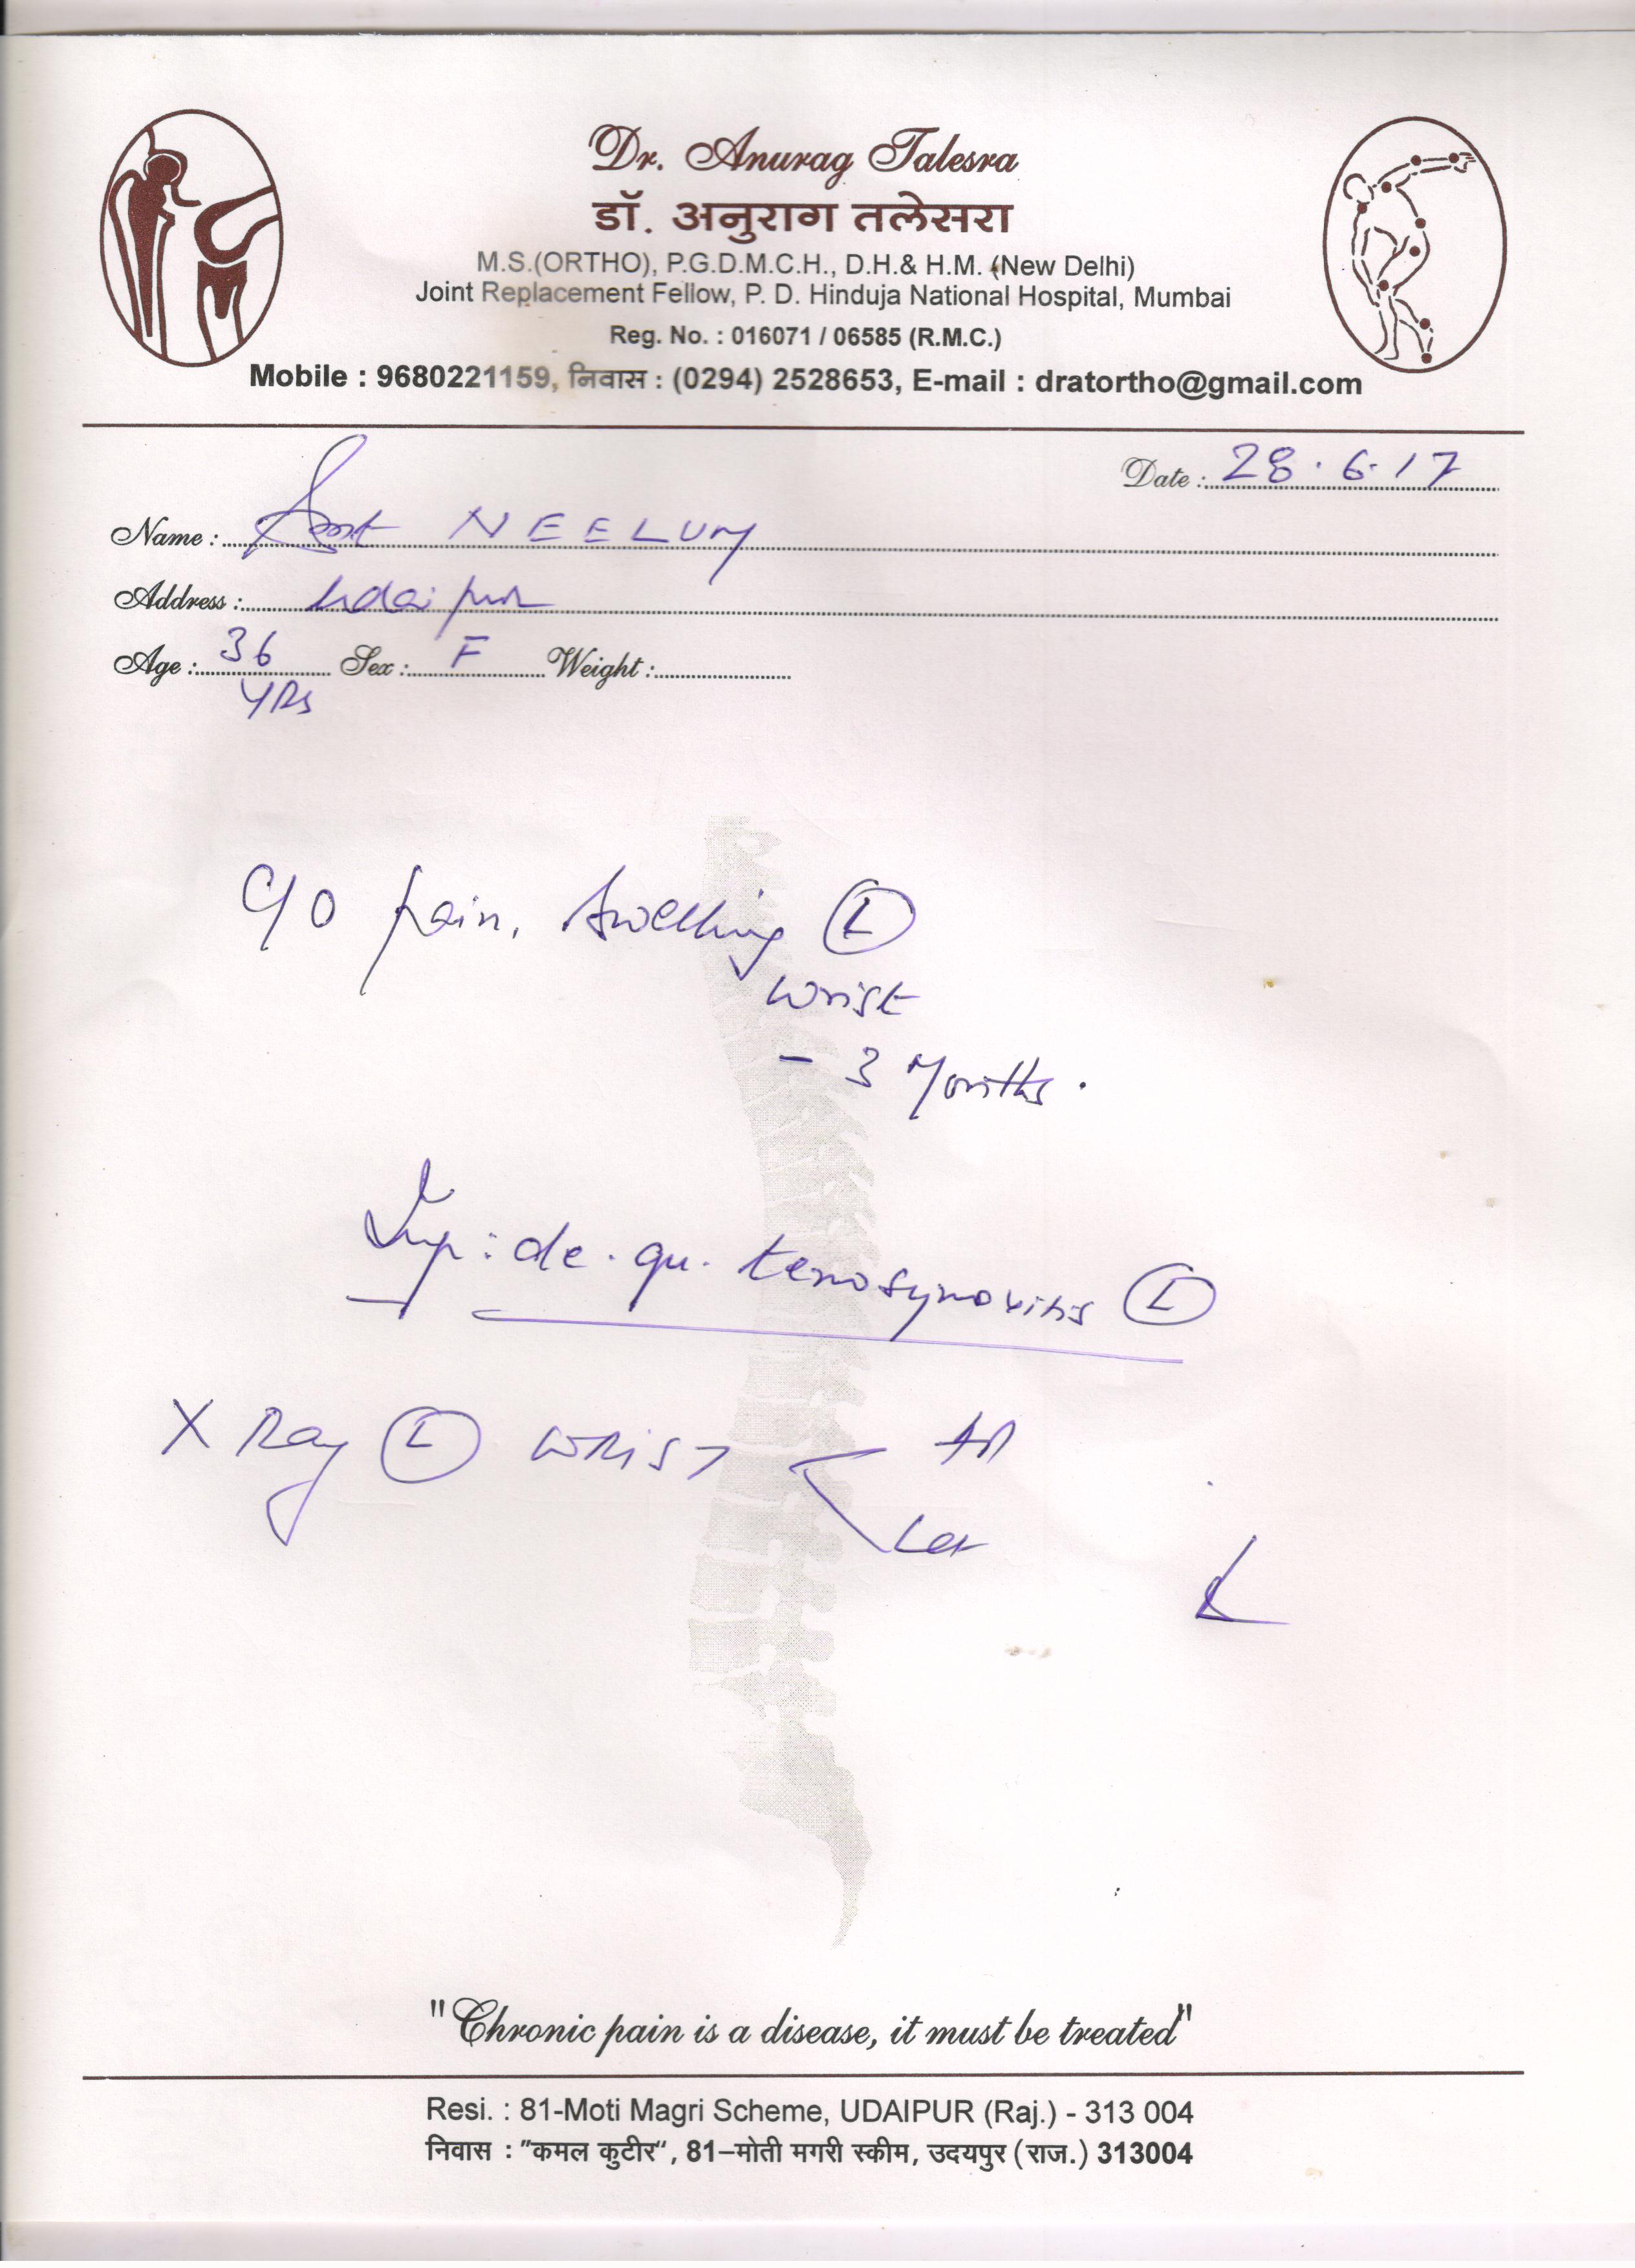 Dr. Anurag Talesra
डॉ. अनुराग तलेसरा
M.S.(ORTHO), P.G.D.M.C.H., D.H.& H.M. (New Delhi)
Joint Replacement Fellow, P. D. Hinduja National Hospital, Mumbai
Reg. No. : 016071 / 06585 (R.M.C.)
Mobile : 9680221159, निवास : (0294) 2528653, E-mail : dratortho@gmail.com
Date : 28.6.17
Name : Smt NEELUM
Address : Udaipur
Age : 36 Sex : F Weight :
YRS
C/O pain, swelling (L)
wrist
- 3 Months.
Imp : de. qu. tenosynovitis (L)
X Ray (L) WRIST < AP
Lat
"Chronic pain is a disease, it must be treated"
Resi. : 81-Moti Magri Scheme, UDAIPUR (Raj.) - 313 004
निवास : "कमल कुटीर", 81–मोती मगरी स्कीम, उदयपुर (राज.) 313004